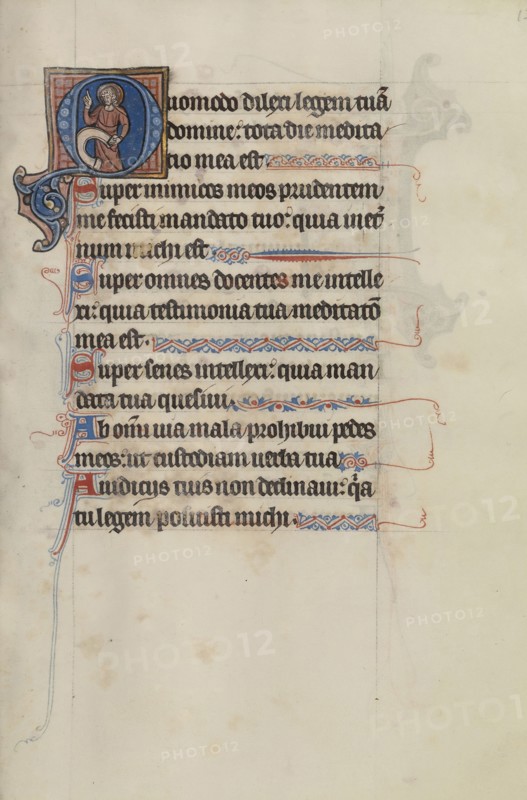 Quomodo dilexi legem tuã
domine: tota die medita
tio mea est
Super inimicos meos prudentem
me fecisti mandato tuo: quia in et̃
num michi est
Super omnes docentes me intelle
xi: quia testimonia tua meditatõ
mea est.
Super senes intellexi: quia man
data tua quesivi.
Ab om̃i uia mala prohibui pedes
meos: ut custodiam uerba tua
A iudicijs tuis non declinaui: q̃a
tu legem posuisti michi.
PHOTO12
PHOTO12
PHOTO12
PHOTO12
PHOTO12
PHOTO12
PHOTO12